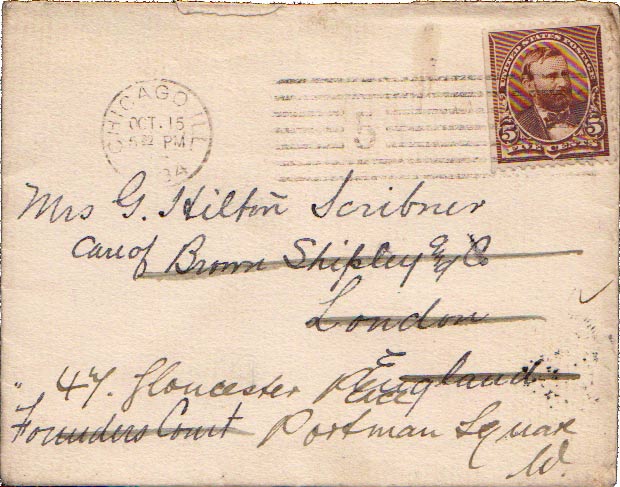 CHICAGO ILL
OCT. 15
5 PM
94
5
UNITED STATES POSTAGE
5 5
FIVE CENTS
Mrs G. Hilton Scribner
Care of Brown Shipley & Co
London
England
47. Gloucester Place
Founders Court Portman Square
W.